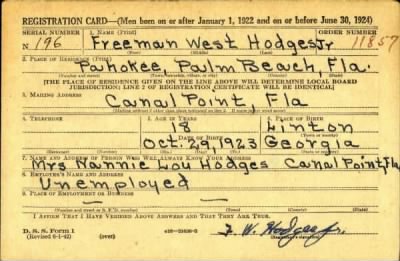 REGISTRATION CARD—(Men born on or after January 1, 1922 and on or before June 30, 1924)
SERIAL NUMBER 1. NAME (Print) ORDER NUMBER
N 196 Freeman West Hodges Jr 11857
2. PLACE OF RESIDENCE (Print)
Pahokee, Palm Beach, Fla.
(THE PLACE OF RESIDENCE GIVEN ON THE LINE ABOVE WILL DETERMINE LOCAL BOARD
JURISDICTION; LINE 2 OF REGISTRATION CERTIFICATE WILL BE IDENTICAL)
3. MAILING ADDRESS
Canal Point, Fla
4. TELEPHONE 5. AGE IN YEARS 6. PLACE OF BIRTH
18 Linton
DATE OF BIRTH
Oct. 29, 1923 Georgia
7. NAME AND ADDRESS OF PERSON WHO WILL ALWAYS KNOW YOUR ADDRESS
Mrs. Nannie Lou Hodges Canal Point, Fla
8. EMPLOYER'S NAME AND ADDRESS
Unemployed
9. PLACE OF EMPLOYMENT OR BUSINESS
I AFFIRM THAT I HAVE VERIFIED ABOVE ANSWERS AND THAT THEY ARE TRUE.
D. S. S. Form 1
(Revised 6-1-42) (over) F. W. Hodges Jr.